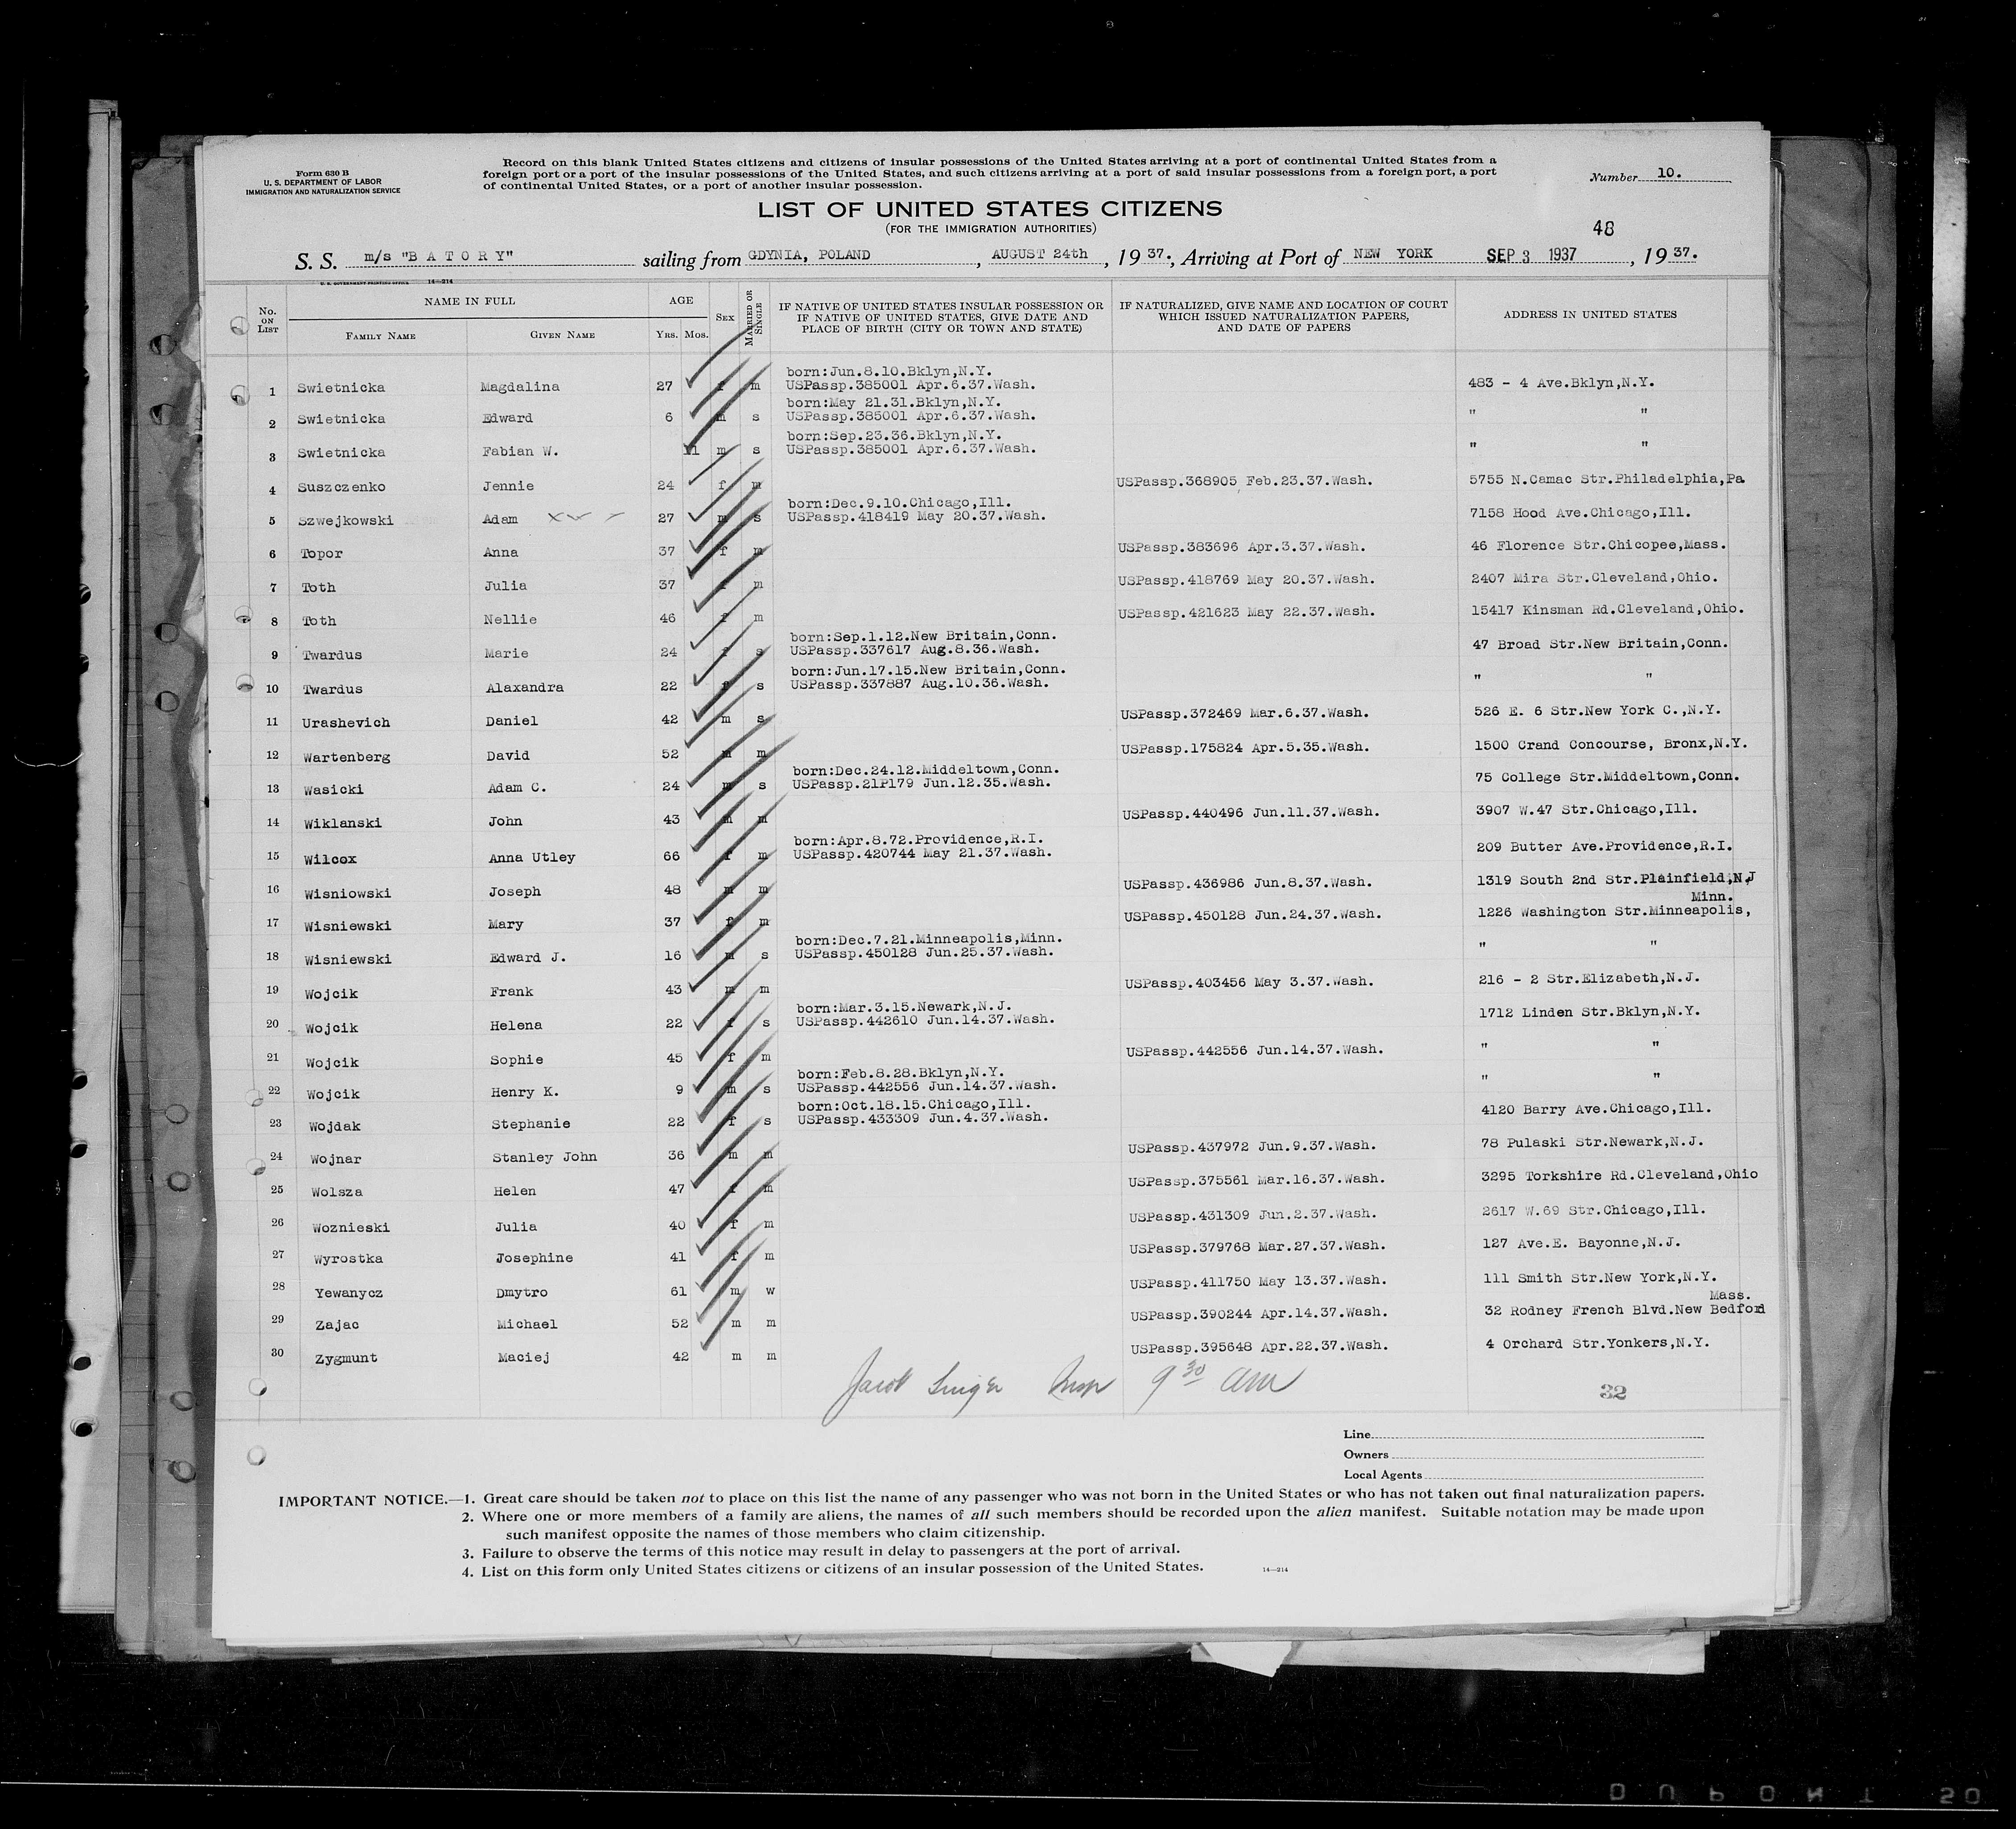 Form 630 B
U. S. DEPARTMENT OF LABOR
IMMIGRATION AND NATURALIZATION SERVICE
Record on this blank United States citizens and citizens of insular possessions of the United States arriving at a port of continental United States from a
foreign port or a port of the insular possessions of the United States, and such citizens arriving at a port of said insular possessions from a foreign port, a port
of continental United States, or a port of another insular possession.
Number 10.
LIST OF UNITED STATES CITIZENS
(FOR THE IMMIGRATION AUTHORITIES)
48
S. S. m/s "B A T O R Y" sailing from GDYNIA, POLAND, AUGUST 24th, 19 37., Arriving at Port of NEW YORK SEP 3 1937, 19 37.
U. S. GOVERNMENT PRINTING OFFICE 14—214
No. ON LIST NAME IN FULL FAMILY NAME GIVEN NAME AGE YRS. MOS. SEX MARRIED OR SINGLE IF NATIVE OF UNITED STATES INSULAR POSSESSION OR IF NATIVE OF UNITED STATES, GIVE DATE AND PLACE OF BIRTH (CITY OR TOWN AND STATE) IF NATURALIZED, GIVE NAME AND LOCATION OF COURT WHICH ISSUED NATURALIZATION PAPERS, AND DATE OF PAPERS ADDRESS IN UNITED STATES
born:Jun.8.10.Bklyn,N.Y.
1 Swietnicka Magdalina 27 f m USPassp.385001 Apr.6.37.Wash. 483 - 4 Ave.Bklyn,N.Y.
born:May 21.31.Bklyn,N.Y.
2 Swietnicka Edward 6 m s USPassp.385001 Apr.6.37.Wash. " "
born:Sep.23.36.Bklyn,N.Y.
3 Swietnicka Fabian W. 11 m s USPassp.385001 Apr.6.37.Wash. " "
4 Suszczenko Jennie 24 f m USPassp.368905 Feb.23.37.Wash. 5755 N.Camac Str.Philadelphia,Pa
born:Dec.9.10.Chicago,Ill.
5 Szwejkowski Adam 27 m s USPassp.418419 May 20.37.Wash. 7158 Hood Ave.Chicago,Ill.
6 Topor Anna 37 f m USPassp.383696 Apr.3.37.Wash. 46 Florence Str.Chicopee,Mass.
7 Toth Julia 37 f m USPassp.418769 May 20.37.Wash. 2407 Mira Str.Cleveland,Ohio.
8 Toth Nellie 46 f m USPassp.421623 May 22.37.Wash. 15417 Kinsman Rd.Cleveland,Ohio.
born:Sep.1.12.New Britain,Conn.
9 Twardus Marie 24 f s USPassp.337617 Aug.8.36.Wash. 47 Broad Str.New Britain,Conn.
born:Jun.17.15.New Britain,Conn.
10 Twardus Alaxandra 22 f s USPassp.337887 Aug.10.36.Wash. " "
11 Urashevich Daniel 42 m s USPassp.372469 Mar.6.37.Wash. 526 E. 6 Str.New York C.,N.Y.
12 Wartenberg David 52 m m USPassp.175824 Apr.5.35.Wash. 1500 Crand Concourse, Bronx,N.Y.
born:Dec.24.12.Middeltown,Conn.
13 Wasicki Adam C. 24 m s USPassp.21P179 Jun.12.35.Wash. 75 College Str.Middeltown,Conn.
14 Wiklanski John 43 m m USPassp.440496 Jun.11.37.Wash. 3907 W.47 Str.Chicago,Ill.
born:Apr.8.72.Providence,R.I.
15 Wilcox Anna Utley 66 f m USPassp.420744 May 21.37.Wash. 209 Butter Ave.Providence,R.I.
16 Wisniowski Joseph 48 m m USPassp.436986 Jun.8.37.Wash. 1319 South 2nd Str.Plainfield,N,J
Minn.
17 Wisniewski Mary 37 f m USPassp.450128 Jun.24.37.Wash. 1226 Washington Str.Minneapolis,
born:Dec.7.21.Minneapolis,Minn.
18 Wisniewski Edward J. 16 m s USPassp.450128 Jun.25.37.Wash. " "
19 Wojcik Frank 43 m m USPassp.403456 May 3.37.Wash. 216 - 2 Str.Elizabeth,N.J.
born:Mar.3.15.Newark,N.J.
20 Wojcik Helena 22 f s USPassp.442610 Jun.14.37.Wash. 1712 Linden Str.Bklyn,N.Y.
21 Wojcik Sophie 45 f m USPassp.442556 Jun.14.37.Wash. " "
born:Feb.8.28.Bklyn,N.Y.
22 Wojcik Henry K. 9 m s USPassp.442556 Jun.14.37.Wash. " "
born:Oct.18.15.Chicago,Ill.
23 Wojdak Stephanie 22 f s USPassp.433309 Jun.4.37.Wash. 4120 Barry Ave.Chicago,Ill.
24 Wojnar Stanley John 36 m m USPassp.437972 Jun.9.37.Wash. 78 Pulaski Str.Newark,N.J.
25 Wolsza Helen 47 f m USPassp.375561 Mar.16.37.Wash. 3295 Torkshire Rd.Cleveland,Ohio
26 Woznieski Julia 40 f m USPassp.431309 Jun.2.37.Wash. 2617 W.69 Str.Chicago,Ill.
27 Wyrostka Josephine 41 f m USPassp.379768 Mar.27.37.Wash. 127 Ave.E. Bayonne,N.J.
28 Yewanycz Dmytro 61 m w USPassp.411750 May 13.37.Wash. 111 Smith Str.New York,N.Y.
Mass.
29 Zajac Michael 52 m m USPassp.390244 Apr.14.37.Wash. 32 Rodney French Blvd.New Bedford
30 Zygmunt Maciej 42 m m USPassp.395648 Apr.22.37.Wash. 4 Orchard Str.Yonkers,N.Y.
Jacob Singer Insp 9 30 am
32
Line
Owners
Local Agents
IMPORTANT NOTICE.—1. Great care should be taken not to place on this list the name of any passenger who was not born in the United States or who has not taken out final naturalization papers.
2. Where one or more members of a family are aliens, the names of all such members should be recorded upon the alien manifest. Suitable notation may be made upon
such manifest opposite the names of those members who claim citizenship.
3. Failure to observe the terms of this notice may result in delay to passengers at the port of arrival.
4. List on this form only United States citizens or citizens of an insular possession of the United States.
14—214
DUPONT 50